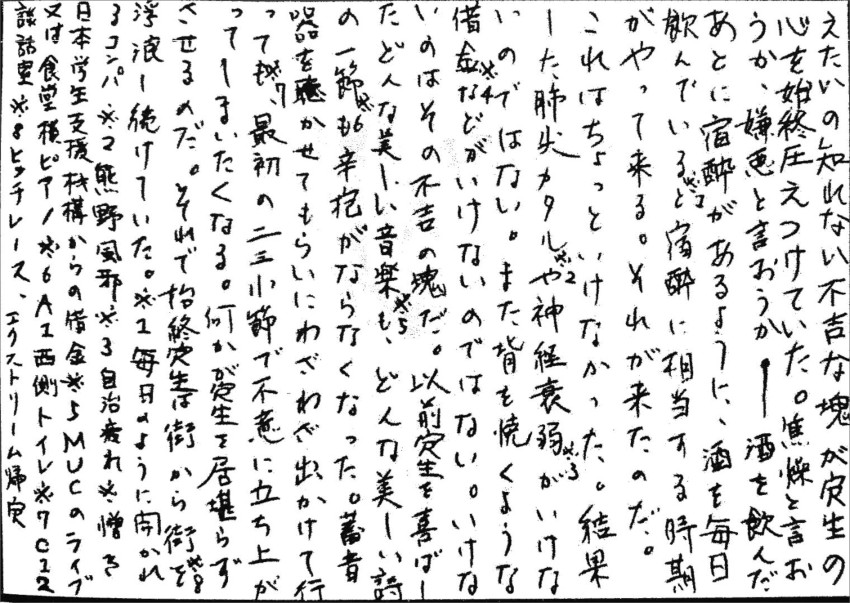 えたいの知れない不吉な塊が定生の
心を始終圧えつけていた。焦燥と言お
うか、嫌悪と言おうか――酒を飲んだ
あとに宿酔があるように、酒を毎日
飲んでいると※1宿酔に相当する時期
がやって来る。それが来たのだ。
これはちょっといけなかった。結果
した肺尖カタル※2や神経衰弱※3がいけな
いのではない。また背を焼くような
借金※4などがいけないのではない。いけな
いのはその不吉の塊だ。以前定生を喜ばし
たどんな美しい音楽※5も、どんな美しい詩
の一節※6も辛抱がならなくなった。蓄音
器を聴かせてもらいにわざわざ出かけて行
っても※7、最初の二三小節で不意に立ち上が
ってしまいたくなる。何かが定生を居堪らず
させるのだ。それで始終定生は街から街を※8
浮浪し続けていた。※1毎日のように開かれ
るコンパ※2熊野風邪※3自治疲れ※4憎き
日本学生支援機構からの借金※5MUCのライブ
又は食堂横ピアノ※6A1西側トイレ※7C12
談話室※8ヒッチレース、エクストリーム帰寮